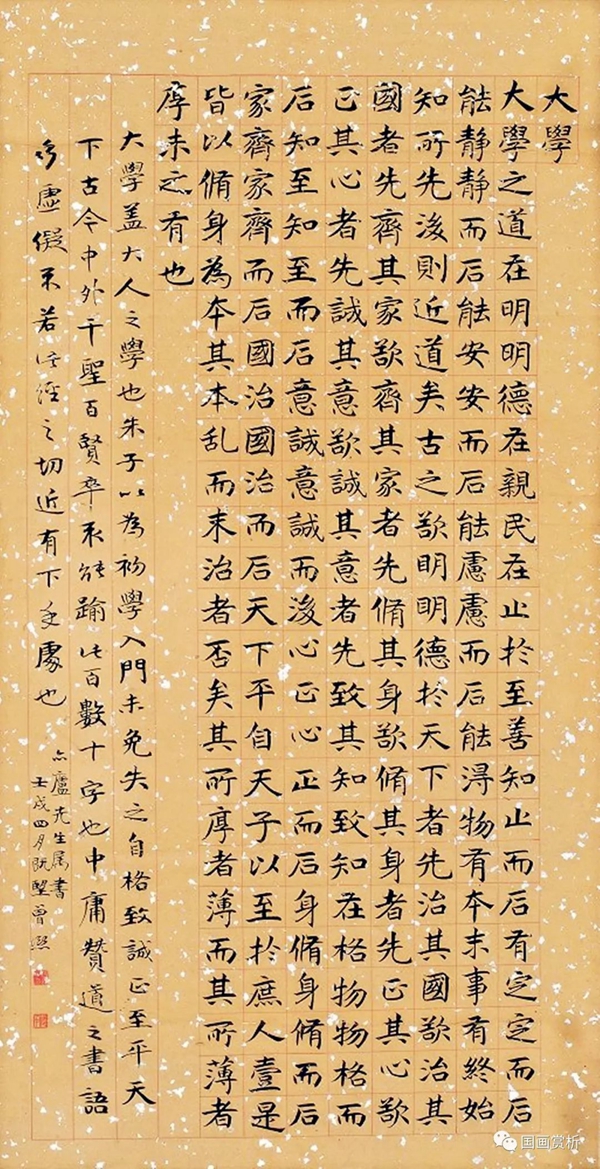 大學
大學之道在明明德在親民在止於至善知止而后有定定而后
能静静而后能安安而后能慮慮而后能淂物有本末事有終始
知所先後則近道矣古之欲明明德於天下者先治其國欲治其
國者先齊其家欲齊其家者先脩其身欲脩其身者先正其心欲
正其心者先誠其意欲誠其意者先致其知致知在格物物格而
后知至知至而后意誠意誠而後心正心正而后身脩身脩而后
家齊家齊而后國治國治而后天下平自天子以至於庶人壹是
皆以脩身為本其本乱而末治者否矣其所厚者薄而其所薄者
厚未之有也
大學蓋大人之學也朱子以為初學入門未免失之自格致誠正至平天
下古今中外千聖百賢卒不能踰此百數十字也中庸贊道之書語
多虛儗不若此經之切近有下手處也
亦廬先生属書
壬戌四月曾熙
国画赏析